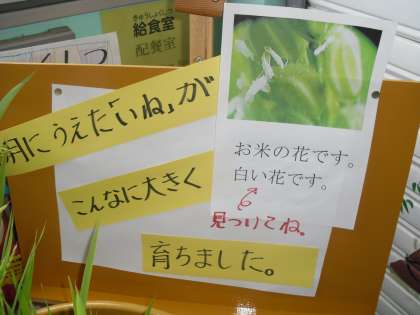 きゅうしょくしつ
給食室
配膳室
月にうえた「いね」が
こんなに大きく
育ちました。
お米の花です。
白い花です。
見つけてね。